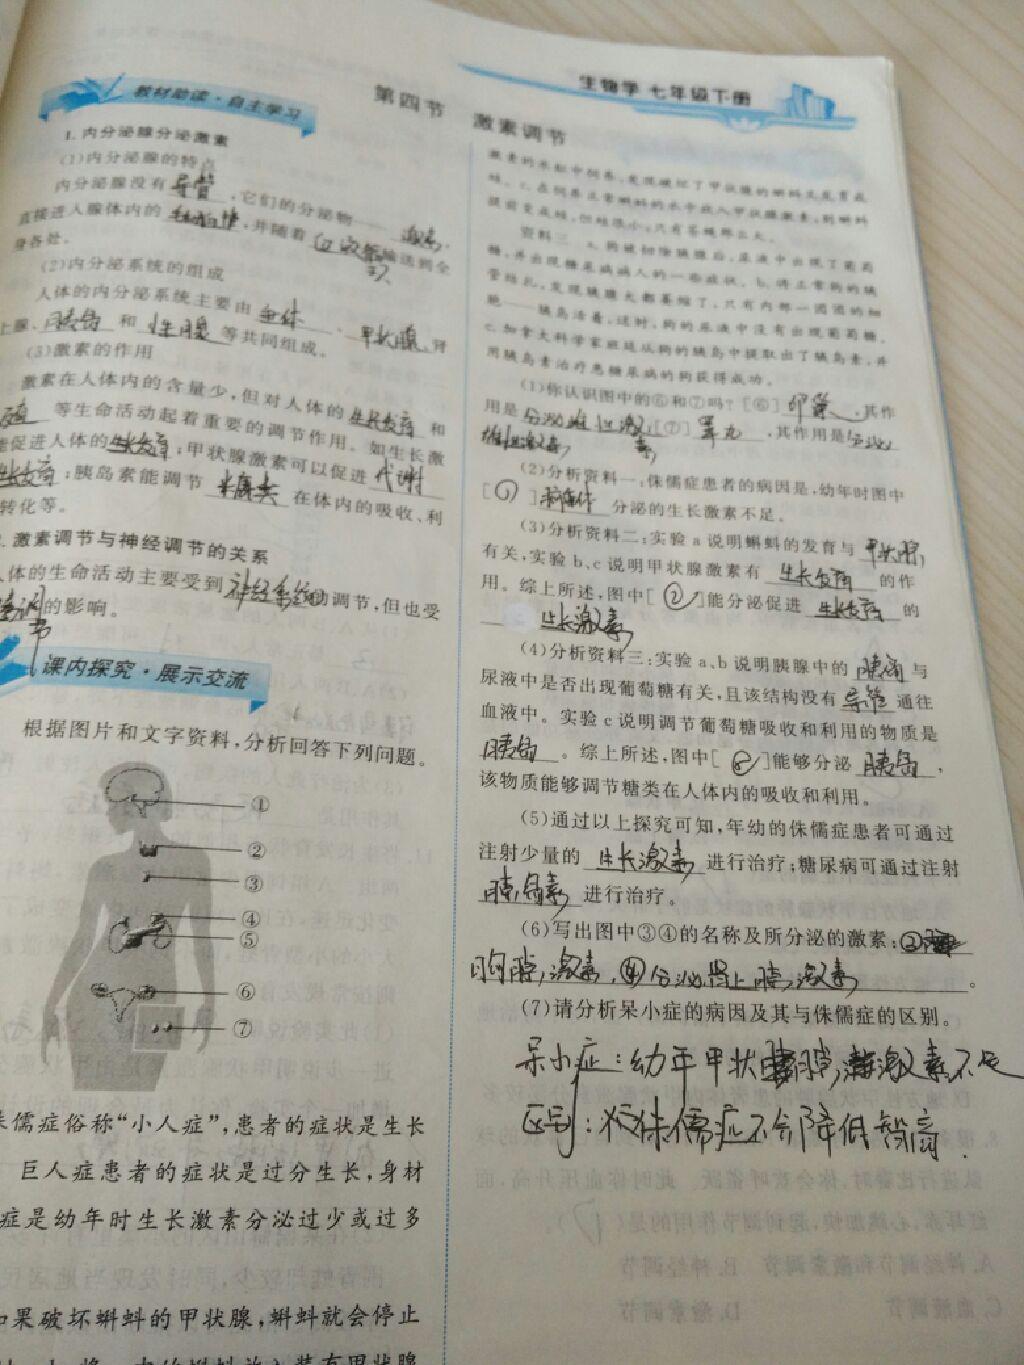 生物学 七年级下册
第四节 激素调节
教材助读·自主学习
1. 内分泌腺分泌激素
(1)内分泌腺的特点
内分泌腺没有 导管 ,它们的分泌物—— 激素,
直接进入腺体内的 ,并随着 输送到全
身各处。
(2)内分泌系统的组成
人体的内分泌系统主要由 垂体 、 甲状腺、肾
上腺、 胰岛 和 性腺 等共同组成。
(3)激素的作用
激素在人体内的含量少,但对人体的 生长发育 和
等生命活动起着重要的调节作用。如生长激
能促进人体的 生长发育 ;甲状腺激素可以促进 代谢
生长发育 ;胰岛素能调节 在体内的吸收、利
转化等。
. 激素调节与神经调节的关系
人体的生命活动主要受到 神经系统的 调节,但也受
激素调节 的影响。
课内探究·展示交流
根据图片和文字资料,分析回答下列问题。
①
②
③
④
⑤
⑥
⑦
侏儒症俗称“小人症”,患者的症状是生长
巨人症患者的症状是过分生长,身材
症是幼年时生长激素分泌过少或过多
如果破坏蝌蚪的甲状腺,蝌蚪就会停止
激素的水缸中饲养,发现破坏了甲状腺的蝌蚪又发育成
蛙。c. 在饲养正常蝌蚪的水中放入甲状腺激素,则蝌蚪
提前变成蛙,但蛙很小,只有苍蝇那么大。
资料三 a. 狗被切除胰腺后,尿液中出现了葡萄
糖,并出现糖尿病病人的一些症状。b. 将正常狗的胰
管结扎,发现胰腺大都萎缩了,只有内部一团团的细
胞——胰岛活着,这时,狗的尿液中没有出现葡萄糖。
c. 加拿大科学家班廷从狗的胰岛中提取出了胰岛素,并
用胰岛素治疗患糖尿病的狗获得成功。
(1)你认识图中的⑥和⑦吗?[⑥] 卵巢 ,其作
用是 分泌雌性激素 [⑦] 睾丸 ,其作用是 分泌
雄性激素
(2)分析资料一:侏儒症患者的病因是,幼年时图中
[ ① ] 垂体 分泌的生长激素不足。
(3)分析资料二:实验a说明蝌蚪的发育与 甲状腺
有关,实验b、c说明甲状腺激素有 生长发育 的作
用。综上所述,图中[ ② ]能分泌促进 生长发育 的
生长激素
(4)分析资料三:实验a、b说明胰腺中的 胰岛 与
尿液中是否出现葡萄糖有关,且该结构没有 导管 通往
血液中。实验c说明调节葡萄糖吸收和利用的物质是
胰岛 。综上所述,图中[ ]能够分泌 胰岛 ,
该物质能够调节糖类在人体内的吸收和利用。
(5)通过以上探究可知,年幼的侏儒症患者可通过
注射少量的 生长激素 进行治疗;糖尿病可通过注射
胰岛素 进行治疗。
(6)写出图中③④的名称及所分泌的激素: ③
胸腺激素,④分泌肾上腺激素 。
(7)请分析呆小症的病因及其与侏儒症的区别。
呆小症:幼年甲状腺激素不足
区别: 侏儒症不会降低智商.